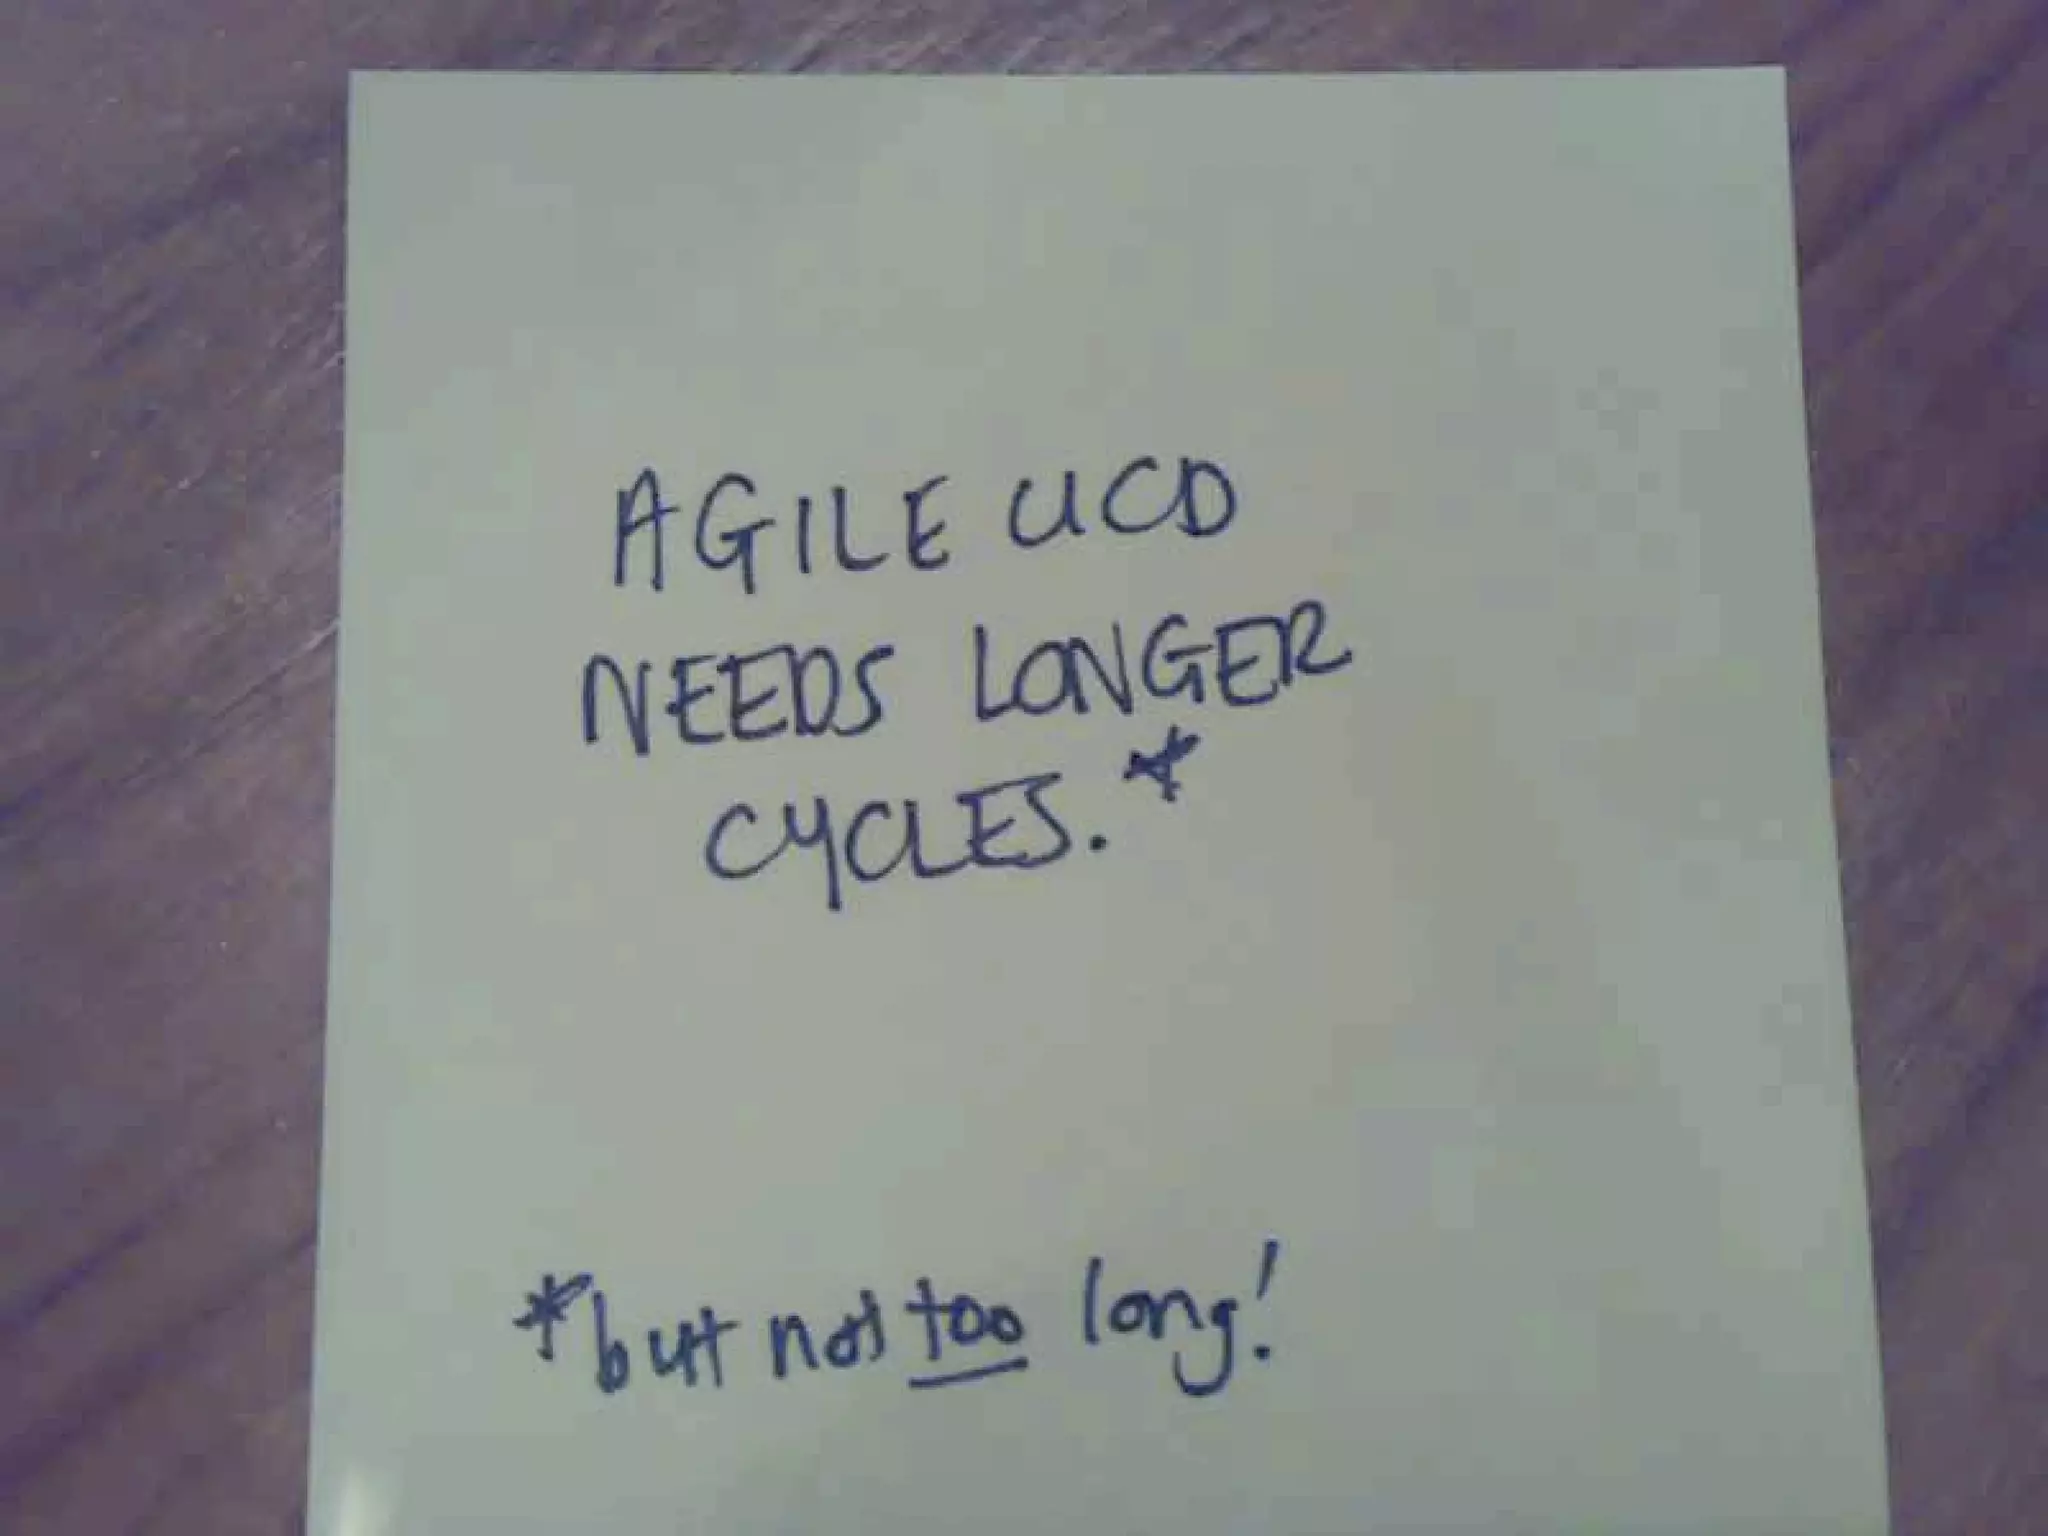 AGILE UCD
NEEDS LONGER
CYCLES.*
*but not too long!